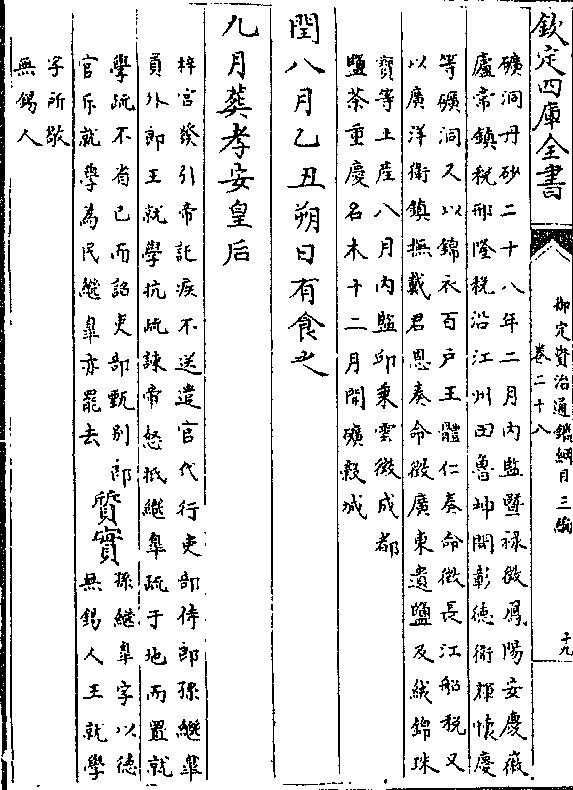 欽定四庫全書
御定資治通鑑綱目三編
卷二十八
十九
礦洞丹砂二十八年二月内監暨禄徵鳳陽安慶徽
廬常鎮税邢隆税沿江州田魯坤開彰德衛輝懷慶
等礦洞又以錦衣百户王體仁奏命徵長江船税又
以廣洋衛鎮撫戴君恩奏命徵廣東遺鹽及絨錦珠
寳等土産八月内監邱乗雲徵成都
鹽茶重慶名木十二月開礦穀城
閏八月乙丑朔日有食之
九月葬孝安皇后
梓宫發引帝託疾不送遣官代行吏部侍郎孫繼臯
員外郎王就學抗疏諫帝怒抵繼臯疏于地而置就
學疏不省已而詔吏部甄别郎
官斥就學為民繼臯亦罷去
質實
孫繼臯字以德
無錫人王就學
字所敬
無錫人